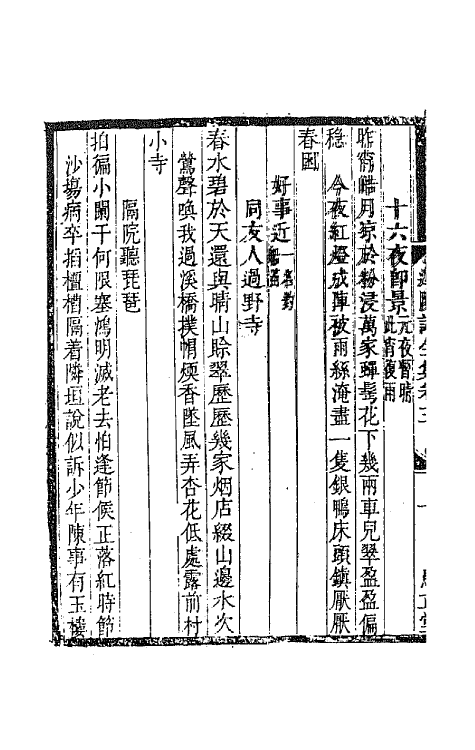 十六夜即景元夜暫晴此宵復雨
昨宵皓月涼於粉浸萬家蟬髩花下幾兩車兒翠盈盈偏
穏　今夜紅燈成陣被雨絲淹盡一隻銀鴨床頭鎮厭厭
春困
好事近一名釣船笛
同友人過野寺
春水碧於天還與晴山賒翠歷歷幾家烟店綴山邊水次
鶯聲喚我過溪橋撲帽煙香墜風弄杏花低處露前村
小寺
隔院聽琵琶
拍徧小闌干何限塞鴻明滅老去怕逢節候正落紅時節
沙場病卒掐檀槽隔着隣垣說似訴少年陳事有玉樓